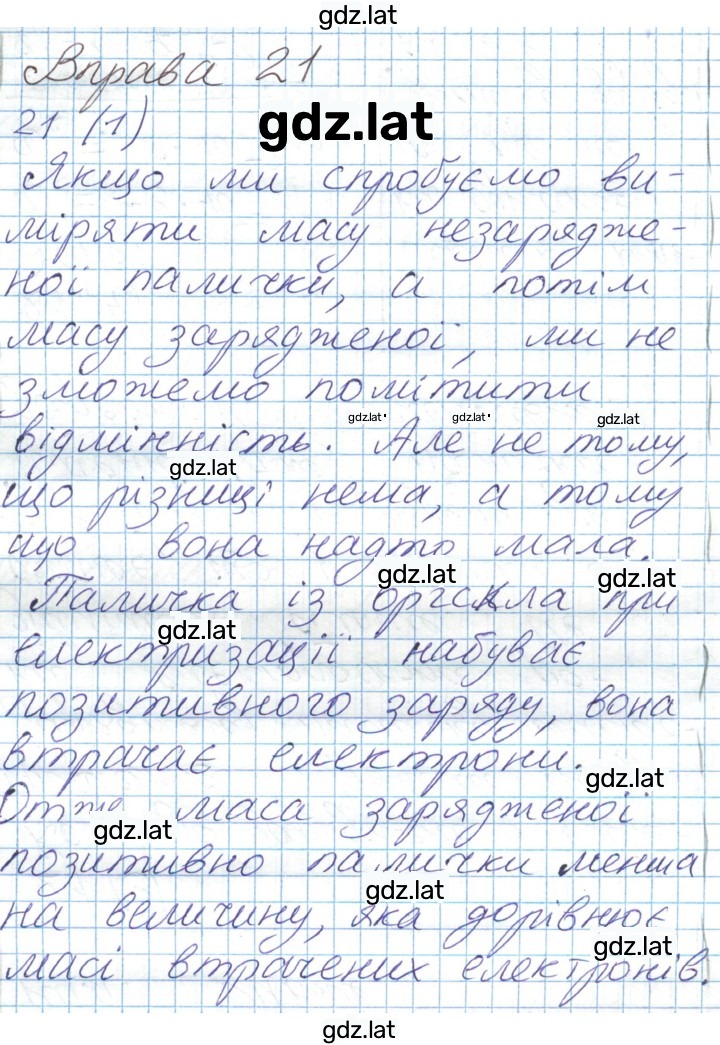 gdz.lat
Вправа 21
21 (1) gdz.lat
Якщо ми спробуємо ви-
міряти масу незарядже-
ної палички, а потім
масу зарядженої, ми не
зможемо помітити
gdz.lat gdz.lat gdz.lat
відмінність. Але не тому,
gdz.lat
що різниці нема, а тому
що вона надто мала.
gdz.lat gdz.lat
Паличка із оргскла при
gdz.lat
електризації набуває
позитивного заряду, вона
втрачає електрони.
gdz.lat
Отже маса зарядженої
gdz.lat
позитивно палички менша
gdz.lat
на величину, яка дорівнює
gdz.lat
масі втрачених електронів.
gdz.lat